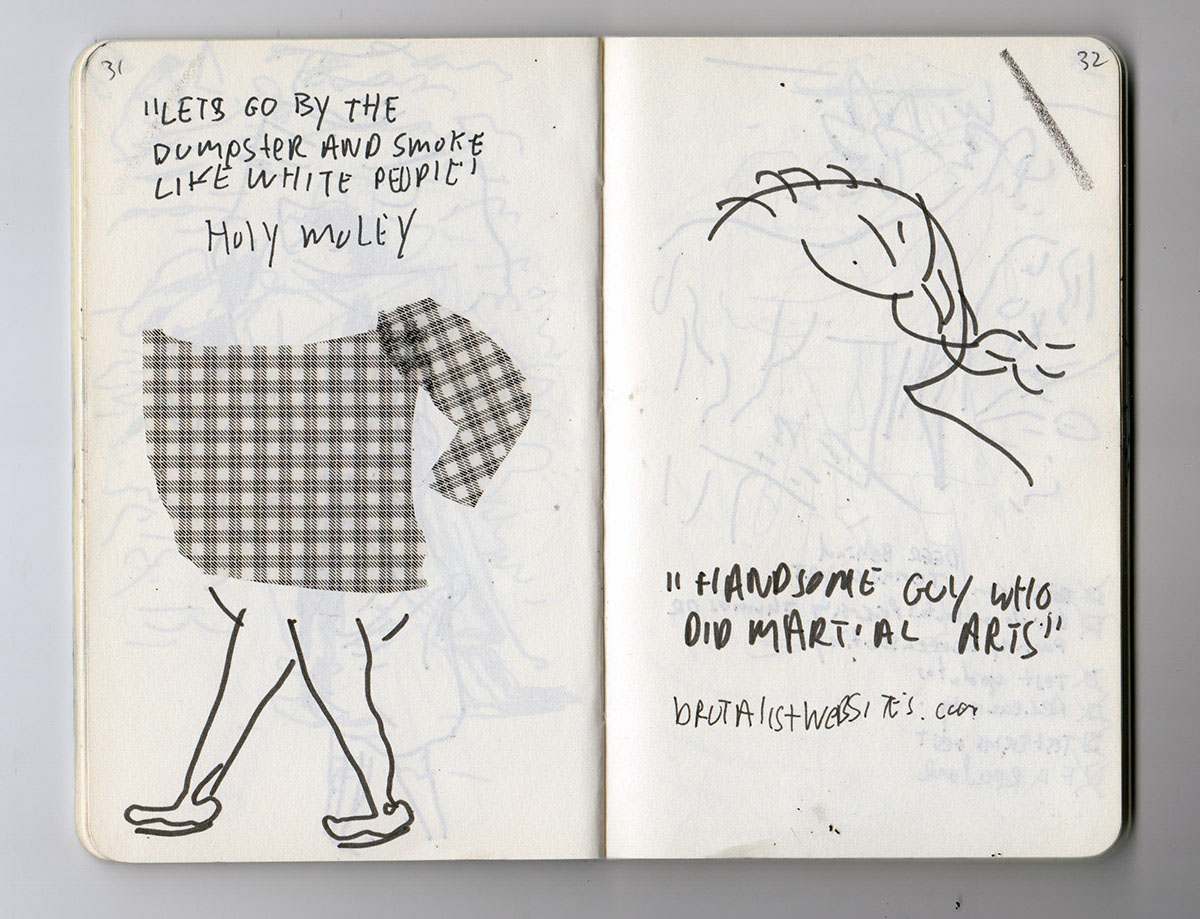 31
"LETS GO BY THE
DUMPSTER AND SMOKE
LIKE WHITE PEOPLE"
HOLY MOLEY
32
"HANDSOME GUY WHO
DID MARTIAL ARTS"
BRUTALISTWEBSITES.COM